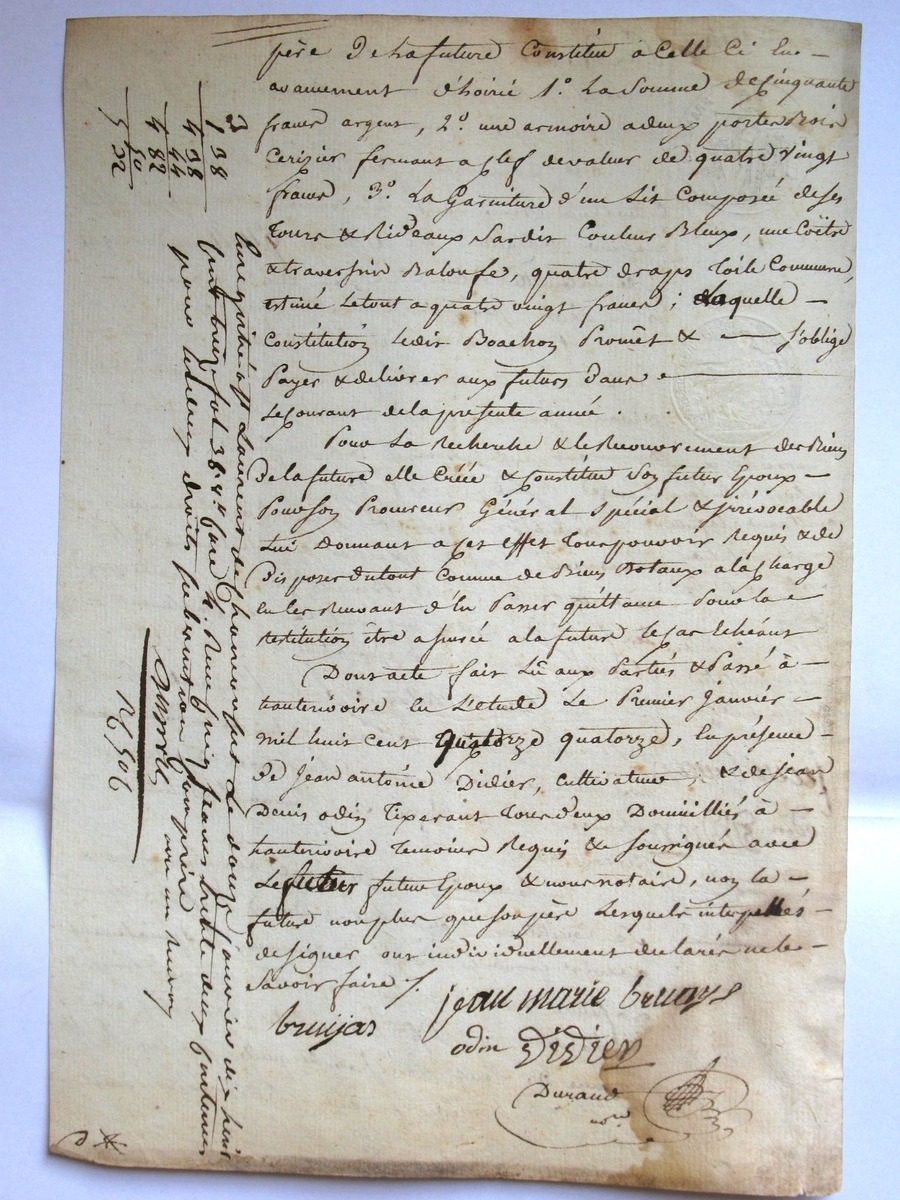 père de la future Constitue à Celle Ci En —
avancement d'hoirie 1.° La Somme de Cinquante
francs argent, 2.° une armoire a deux portes Bois
Cerisier fermant a Clef de valeur de quatre vingt
francs, 3.° La Garniture d'un Lit Composée de Ses
Tours & Rideaux Cadis Couleur Bleux, une Coëtre
& traversin Baloufe, quatre draps Toile Commune,
estimé Le tout a quatre vingt francs ; Laquelle —
Constitution Ledit Boachon Promêt & — s'oblige
Payer & delivrer aux futurs Dans —
Le Courant de la presente année .
Pour La Recherche & le Recouvrement des Biens
de la future elle Créée & Constitue Son futur Epoux —
Pour Son Procureur Général Spécial & irrévocable
Lui Donnant a Cet effet Tous pouvoir Requis & de
Disposer du tout Comme de Biens Dotaux a la Charge
En les Recevant d'En Passer quittance Pour la
restitution être assurée a la future le Cas Echéant
Dont acte fait Lû aux Parties & Passé à —
hauterivoire En L'etude Le Premier Janvier —
mil huit Cent quatorze, En présence —
de Jean antoine Didier, Cultivateur, & de Jean
Denis odin Tixerant Tous deux Domiciliés à —
hauterivoire Temoins Requis & Soussignés avec
Le futur Epoux & nous notaire, non la —
future non plus que Son père Lesquels interpellés —
de Signer ont individuellement declarés ne le —
Savoir faire /.
brujas jean marie brujas
odin Didier
Durand
no.re
3
1 38
4 38
44
4 82
50
5 32
Enregistré à St Laurent de Chamousset le douze janvier dix huit
cent quatorze fol 36 v.° Case 4. Reçu Cinq francs trente deux centimes
pour les deux droits subvention Comprise